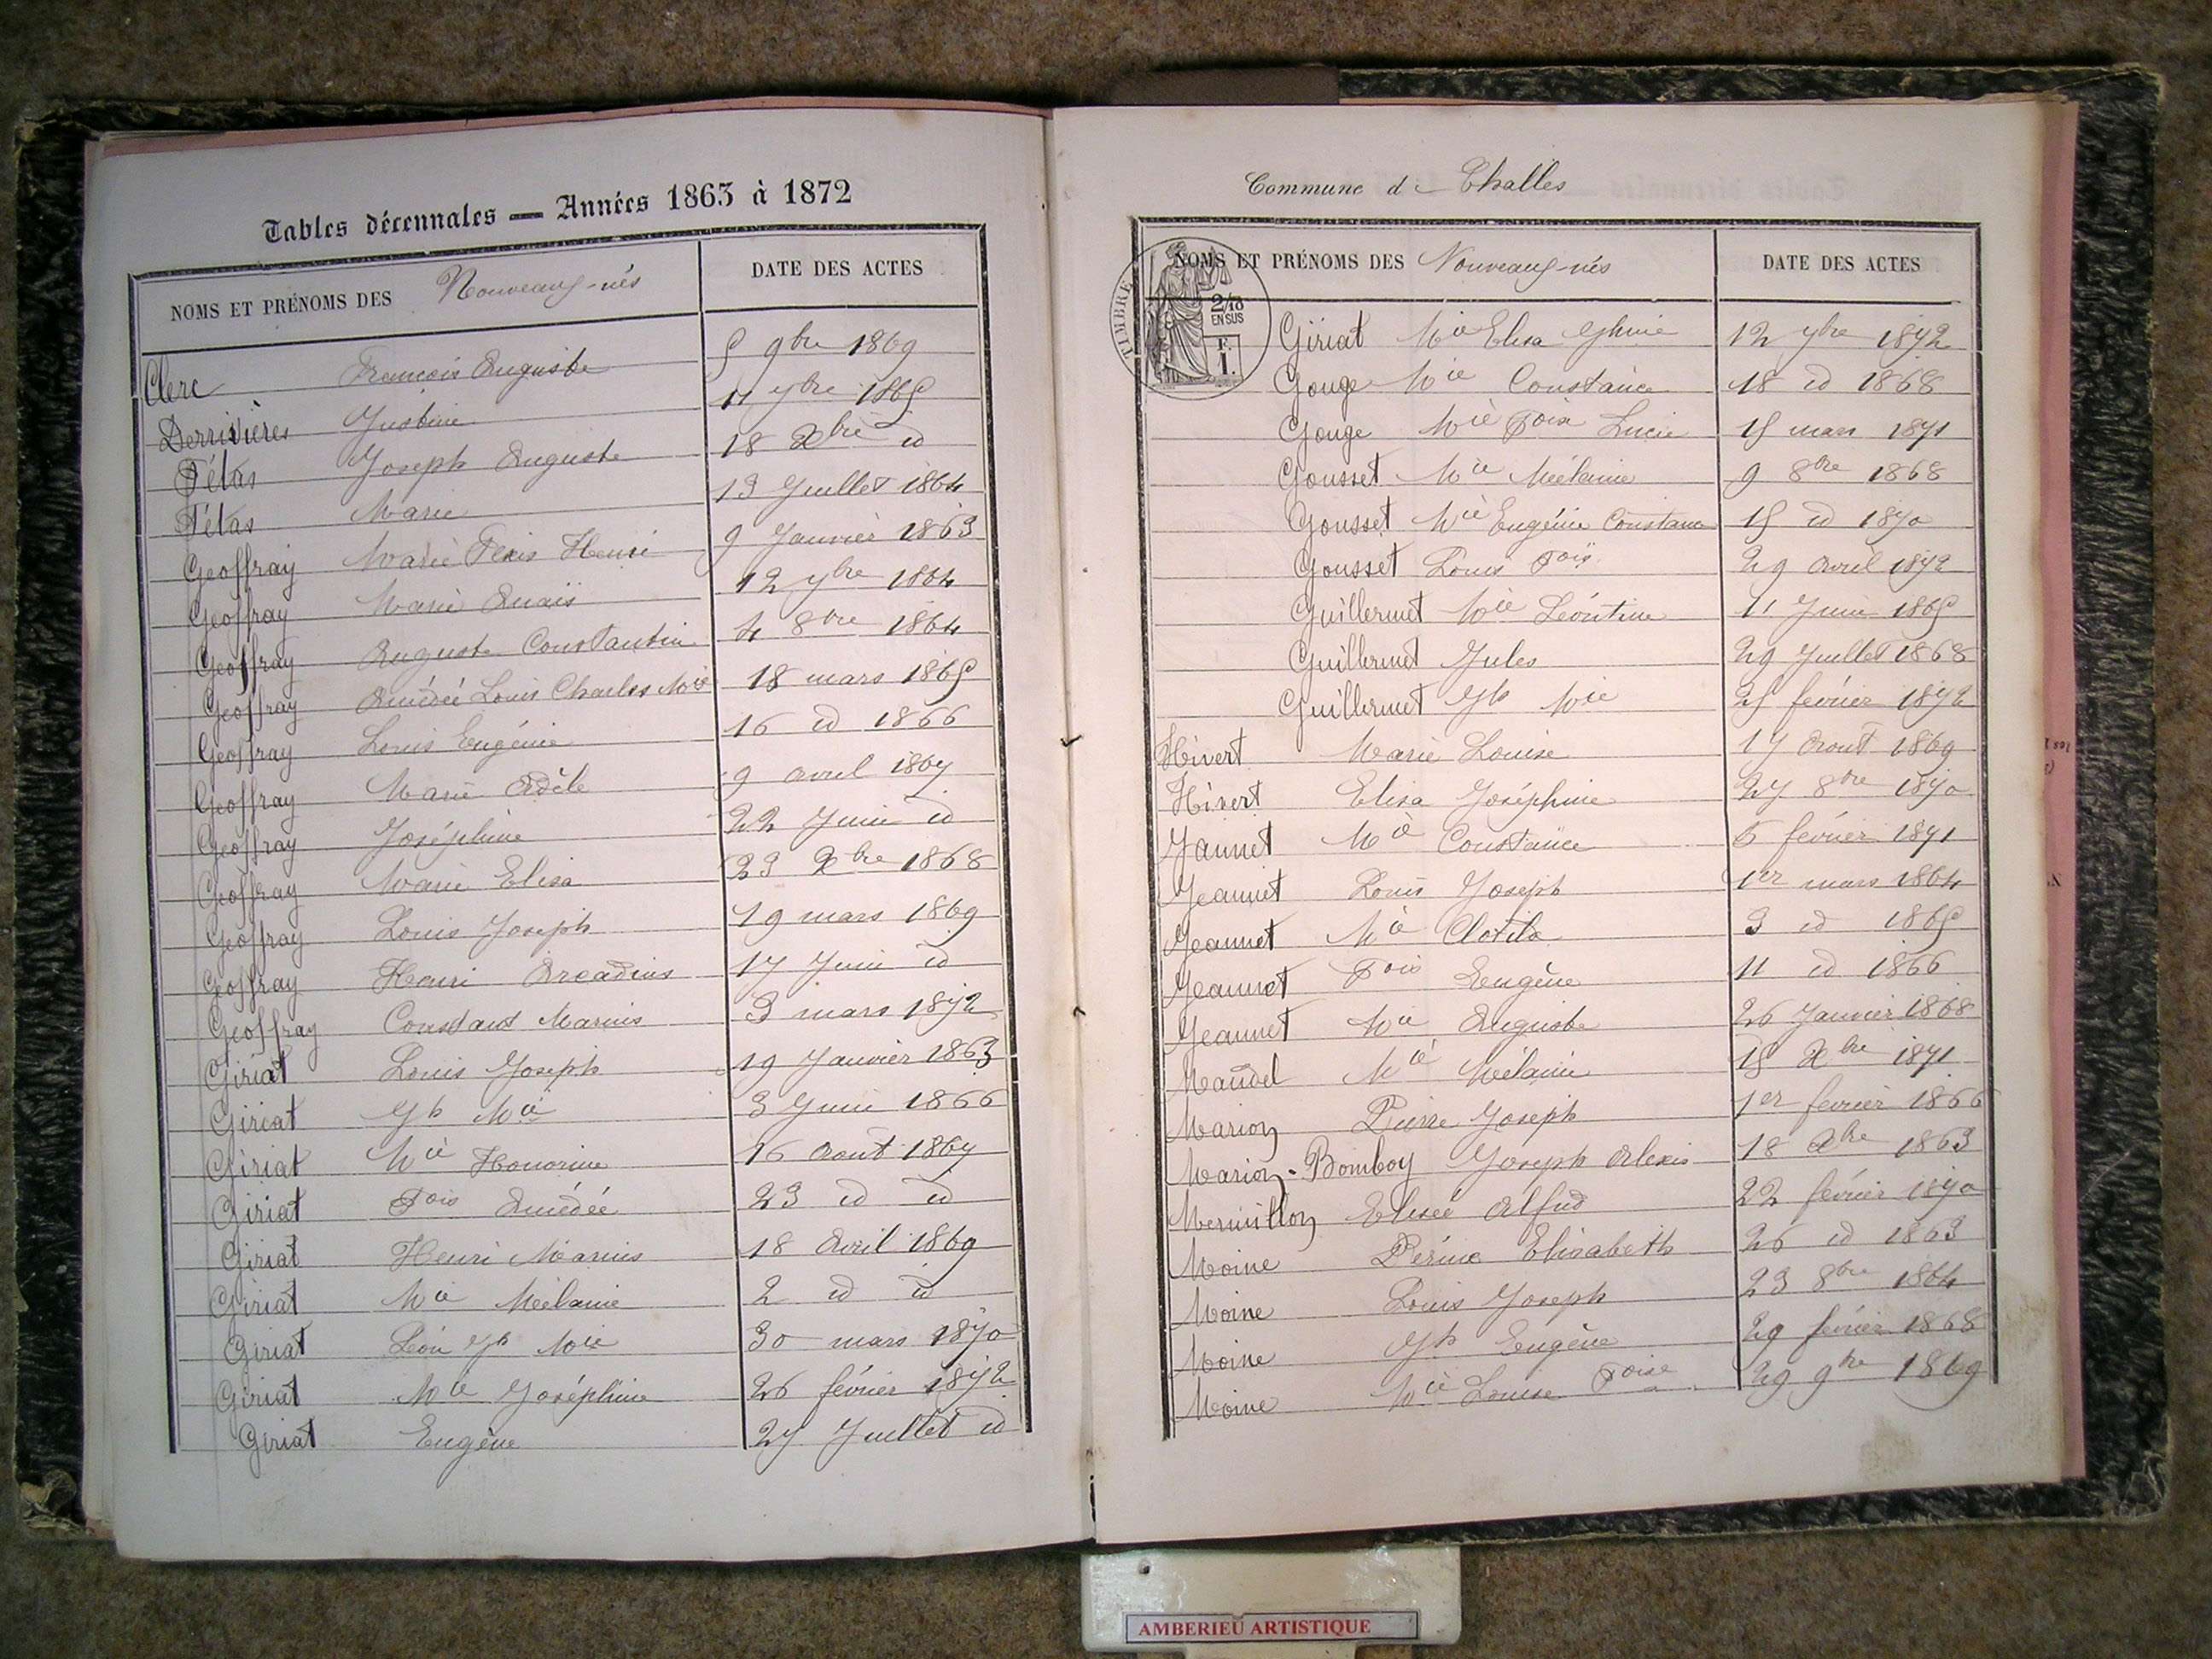 Tables décennales — Années 1863 à 1872
NOMS ET PRÉNOMS DES Nouveaux-nés DATE DES ACTES
Clerc François Auguste 5 9bre 1869
Derrivières Justine 17 7bre 1865
Fétas Joseph Auguste 18 Xbre id
Fétas Marie 13 Juillet 1864
Geoffray Marie Henri 9 Janvier 1863
Geoffray Marie Anaïs 12 7bre 1864
Geoffray Auguste Constantin 4 8bre 1864
Geoffray Amédée Louis Charles Mie 18 mars 1865
Geoffray Louis Eugénie 16 id 1866
Geoffray Marie Adèle 9 avril 1867
Geoffray Joséphine 22 Juin id
Geoffray Marie Elisa 23 Xbre 1868
Geoffray Louis Joseph 19 mars 1869
Geoffray Henri Arcadius 17 Juin id
Geoffray Constant Marius 3 mars 1872
Giriat Louis Joseph 19 Janvier 1863
Giriat Jph Mie 3 Juin 1866
Giriat Mie Honorine 16 Août 1867
Giriat Fois Amédée 23 id id
Giriat Henri Marius 18 Avril 1869
Giriat Mie Mélanie 2 id id
Giriat Léon Jph Mie 30 mars 1870
Giriat Mie Joséphine 26 février 1872
Giriat Eugène 27 Juillet id
Commune de Challes
NOMS ET PRÉNOMS DES Nouveaux-nés DATE DES ACTES
TIMBRE
2/10
EN SUS
F.
1.
Giriat Mie Elisa 12 7bre 1872
Gouge Mie Constance 18 id 1868
Gouge Mie Foise Lucie 15 mars 1871
Gousset Mie Mélanie 9 8bre 1868
Gousset Mie Eugénie Constance 15 id 1870
Gousset Louis Fois 29 Avril 1872
Guillermet Mie Léontine 11 Juin 1865
Guillermet Jules 29 Juillet 1868
Guillermet Jph Mie 25 février 1872
Hivert Marie Louise 17 Aout 1869
Hivert Elisa Joséphine 27 8bre 1870
Jannet Mie Constance 5 février 1871
Jeannet Louis Joseph 1er mars 1864
Jeannet Mie Clotilde 3 id 1865
Jeannet Fois Eugène 11 id 1866
Jeannet Mie Auguste 26 Janvier 1868
Mandel Mie Mélanie 15 Xbre 1871
Marion Pierre Joseph 1er février 1866
Marion-Bomboy Joseph Alexis 18 Xbre 1863
Mermillon Elisée Alfred 22 février 1870
Moine Périne Elisabeth 26 id 1863
Moine Louis Joseph 23 8bre 1864
Moine Jph Eugène 29 février 1868
Moine Mie Louise Foise 29 9bre 1869
AMBERIEU ARTISTIQUE